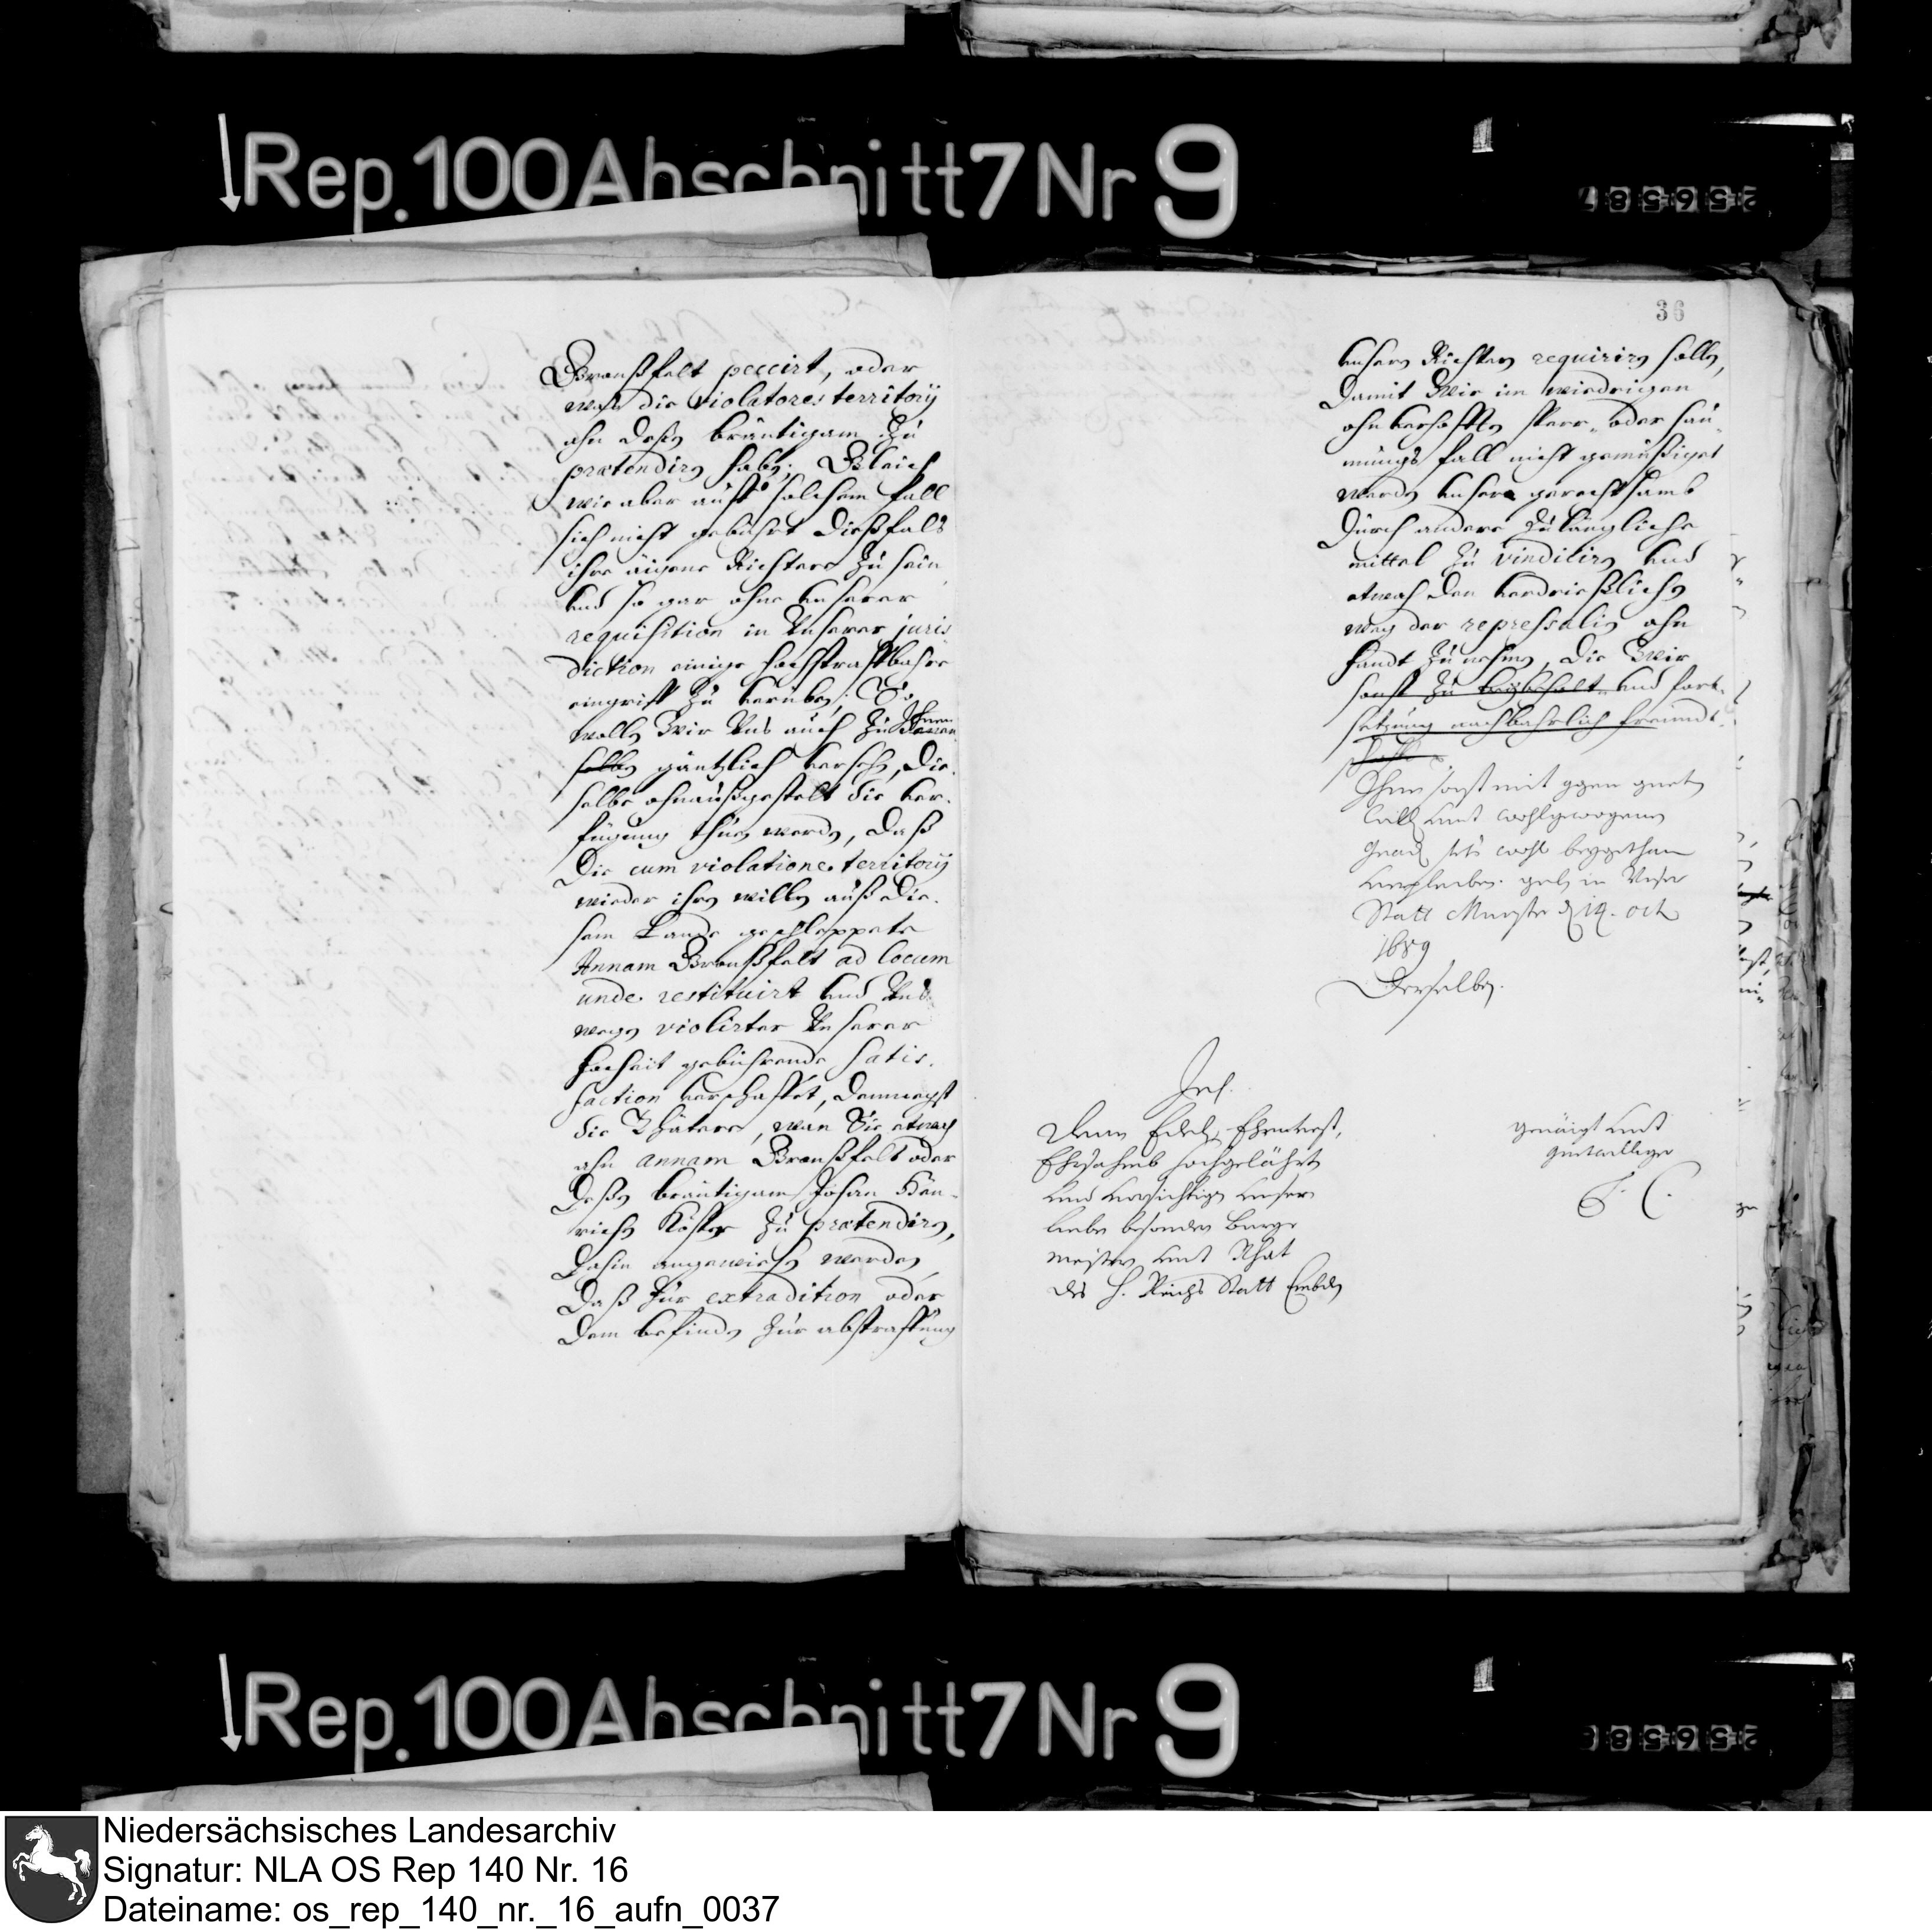 Rep. 100 Abschnitt 7 Nr 9
256587
Bronßfelt peccirt, oder
waß die violatores territorij
ahn deßen bräutigam zu
prætendiren haben; Gleich
wie aber auff solchem fall
sich nicht gebührt dießfals
ihre äigene Richtere zu sein
und so gar ohne unserer
requisition in Unserer juris
diction einige hochstraffbahre
eingriff zu verüben; So
wollen Wir Uns auch zu denen
Ihnen
selben gäntzlich versehen, die-
selbe ohnaußgestelt die ver-
fügung thun werden, daß
die cum violatione territorij
wieder ihren willen auß die-
sem Lande geschleppete
Annam Bronßfelt ad locum
unde restituirt und Uns
wegen violirter Unserer
Hocheit gebührende satis-
faction verschaffet, demnegst
die Thätere, wan Sie etwaß
ahn annam Bronßfelt oder
deßen bräutigam Johan Hen-
richen Köster zu prætendiren,
dahin angewiesen werden,
daß zur extradition oder
dem befinden zur abstraffung
36
unsern Richtern requiriren sollen,
Damit Wir im wiedrigen
ohnverhofften sperr- oder säu-
mungs fall nicht gemüßiget
werden unsere gerechtsamb
durch andere zulängliche
mittel zu vindiciren und
etwaß den verdrießlichen
weg der repressalien ahn
handt zu nehmen, die Wir
sonst zu beybehalt- und fort-
setzung nachbahrlich freundt-
schafft
Ihnen sonst mit
undt wohlgewogenen
wohl beygethan
verpleiben. geben in Unser
Statt Munster d 19. oct
1689
Derselben.
Ins.
Denen Edel, Ehrnvest,
Ehrsahmb hochgelährt
und vorsichtigen unsern
lieben besonderen Burge
meistern undt Rhat
des H. Reichs Statt Embden
geneigt undt
guetwilliger
F. C.
Rep. 100 Abschnitt 7 Nr 9
Niedersächsisches Landesarchiv
Signatur: NLA OS Rep 140 Nr. 16
Dateiname: os_rep_140_nr._16_aufn_0037